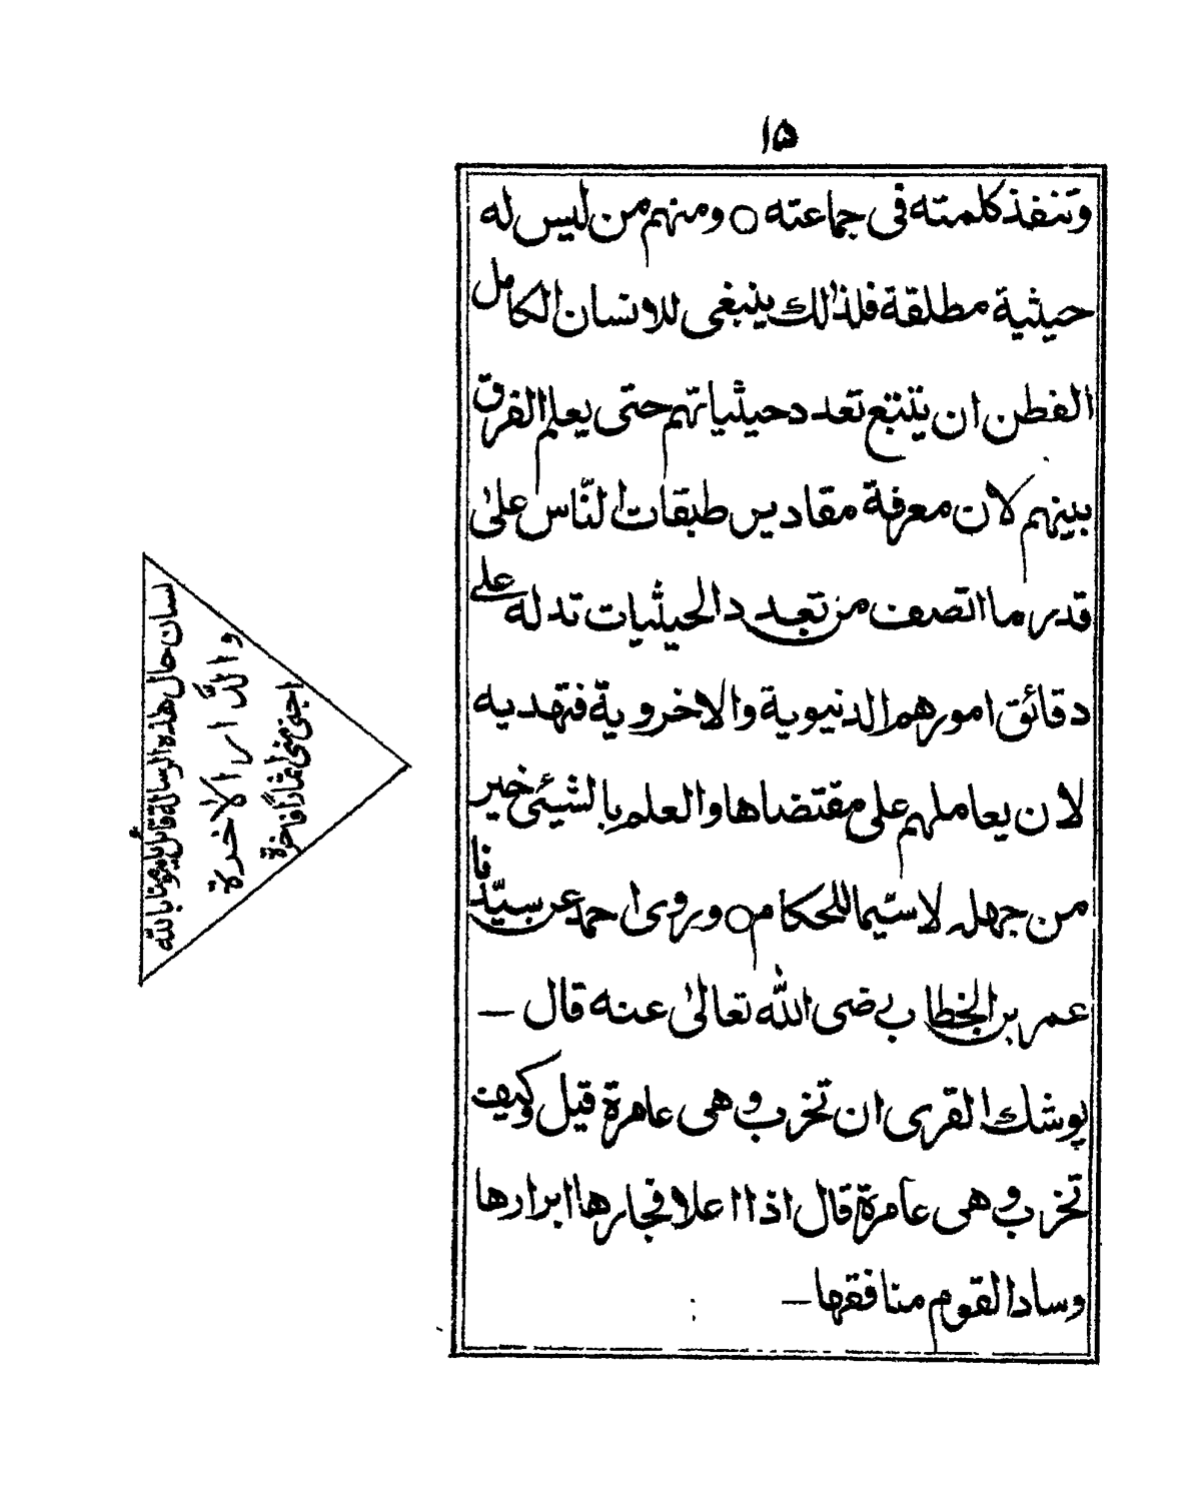 ۱۵
وتنفذ كلمته فى جماعته ○ ومنهم من ليس له
حيثية مطلقة فلذالك ينبغى للانسان الكامل
الفطن ان يتتبع تعدد حيثياتهم حتى يعلم الفرق
بينهم لان معرفة مقادير طبقات النّاس علىٰ
قدر ما اتصف من تعدد الحيثيات تدله على
دقائق امورهم الدنيوية والاخروية فتهديه
لان يعاملهم على مقتضاها والعلم بالشيئى خير
من جهله لاسيّما للحكام ○ وروىٰ احمد عن سيّدنا
عمر بن الخطاب رضى اللّٰه تعالىٰ عنه قال —
يوشك القرى ان تخرب وهى عامرة قيل وكيف
تخرب وهى عامرة قال اذا اعلا فجارها ابرارها
وسادا القوم منافقها —
لسان حال هٰذه الرسالة قائل يا مؤمنا باللّٰه
والدَّار الاٰخرة
اجنى منى اثمارًا فاخرة